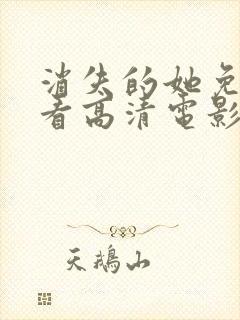 消失的她免
看高清电影
天鹅山